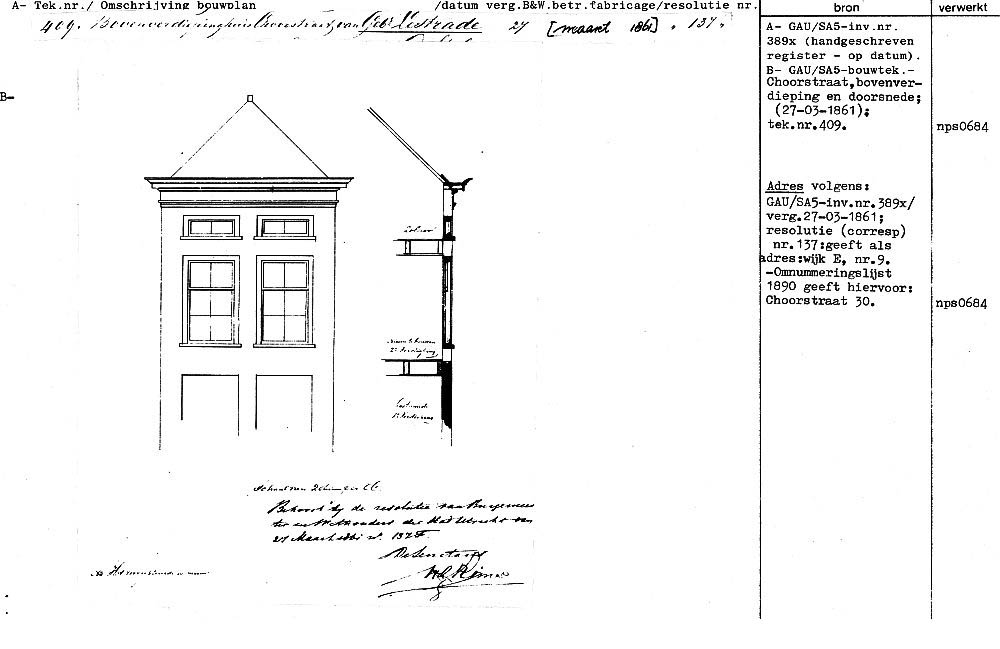 A- Tek.nr./ Omschrijving bouwplan /datum verg.B&W.betr.fabricage/resolutie nr.
bron
verwerkt
409. Bovenverdieping huis Choorstraat, van Gebr Lestrade 27 [maart 1861] „ 137 „
B-
A- GAU/SA5-inv.nr.
389x (handgeschreven
register - op datum).
B- GAU/SA5-bouwtek.-
Choorstraat,bovenver-
dieping en doorsnede;
(27-03-1861);
tek.nr.409.
nps0684
Adres volgens:
GAU/SA5-inv.nr.389x/
verg.27-03-1861;
resolutie (corresp)
nr.137:geeft als
adres:wijk E, nr.9.
-Omnummeringslijst
1890 geeft hiervoor:
Choorstraat 30.
nps0684
Zolder
Nieuw te bouwen
2e Verdieping
Bestaande
1e Verdieping
Schaal van
Behoort bij de resolutie van Burgemees
ter en Wethouders der stad Utrecht van
27 Maart 1861 No. 137 F.
De Secretaris